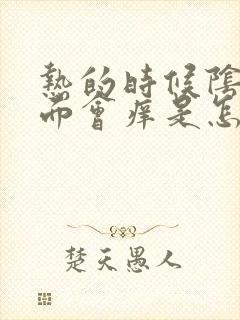 熱的時候陰
而會痒是怎
楚天愚人